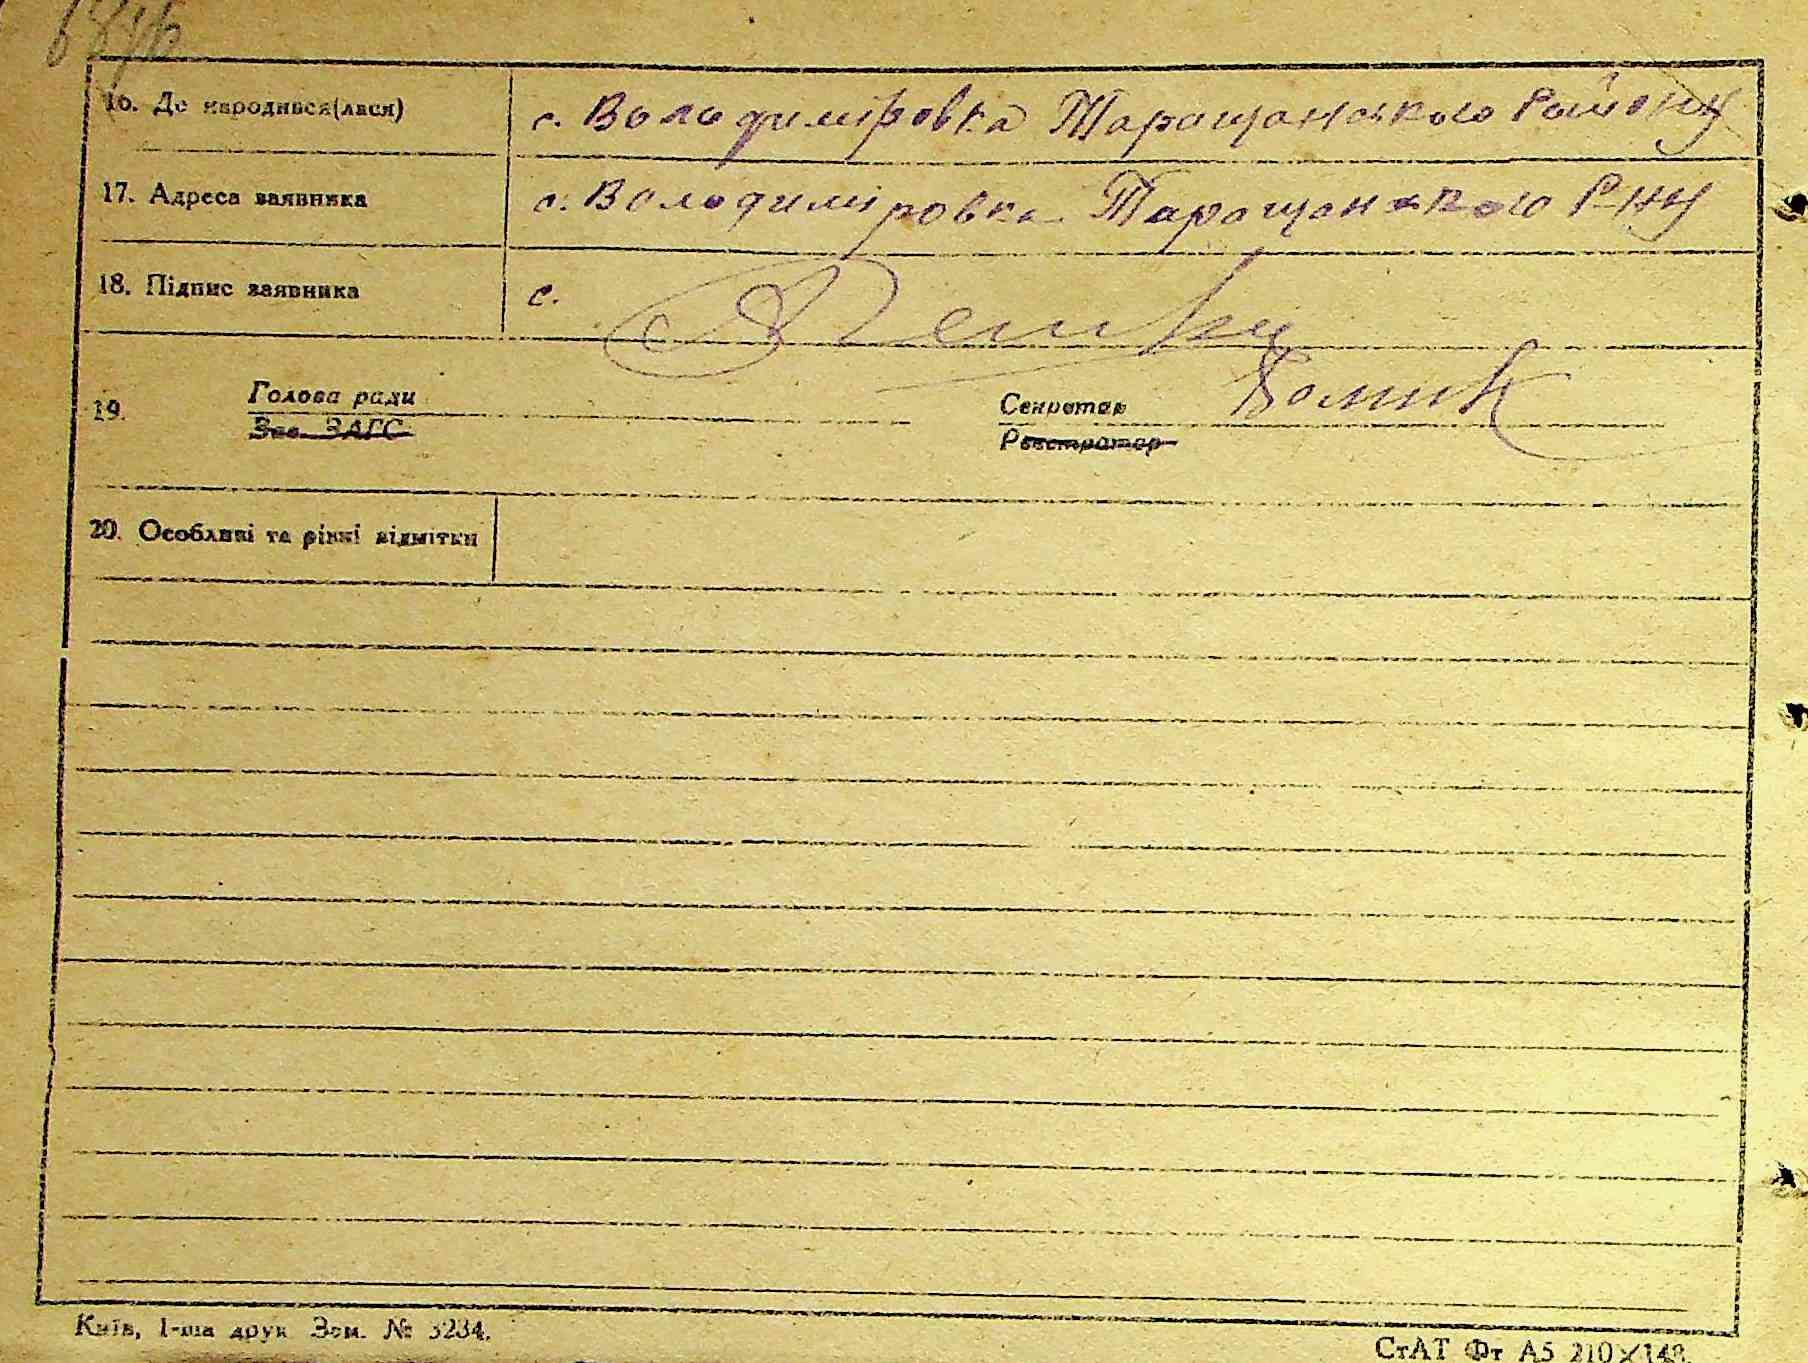 16. Де народився(лася) с. Володиміровка Таращанського Району
17. Адреса заявника с. Володиміровка Таращанського Р-ну
18. Підпис заявника с.
19. Голова ради Секретар
Зав. ЗАГС Реєстратор
20. Особливі та різні відмітки
Київ, 1-ша друк. Зам. № 3234.
СтАТ Фт А5 210×148